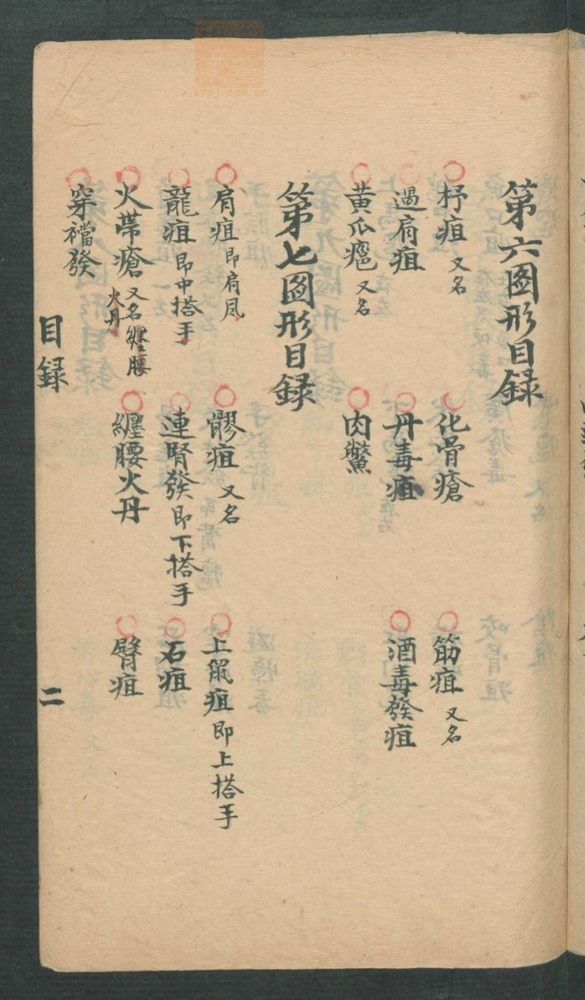 第六图形目録
杼疽 又名 化骨瘡 筋疽 又名
過肩疽 丹毒疽 酒毒發疽
黄瓜癰 又名 肉鱉
第七图形目録
肩疽 即肩风 髎疽 又名 上鼠疽 即上搭手
龍疽 即中搭手 連腎發 即下搭手 石疽
火帶瘡 又名纏腰火丹 纏腰火丹 臀疽
穿襠發
目録 二